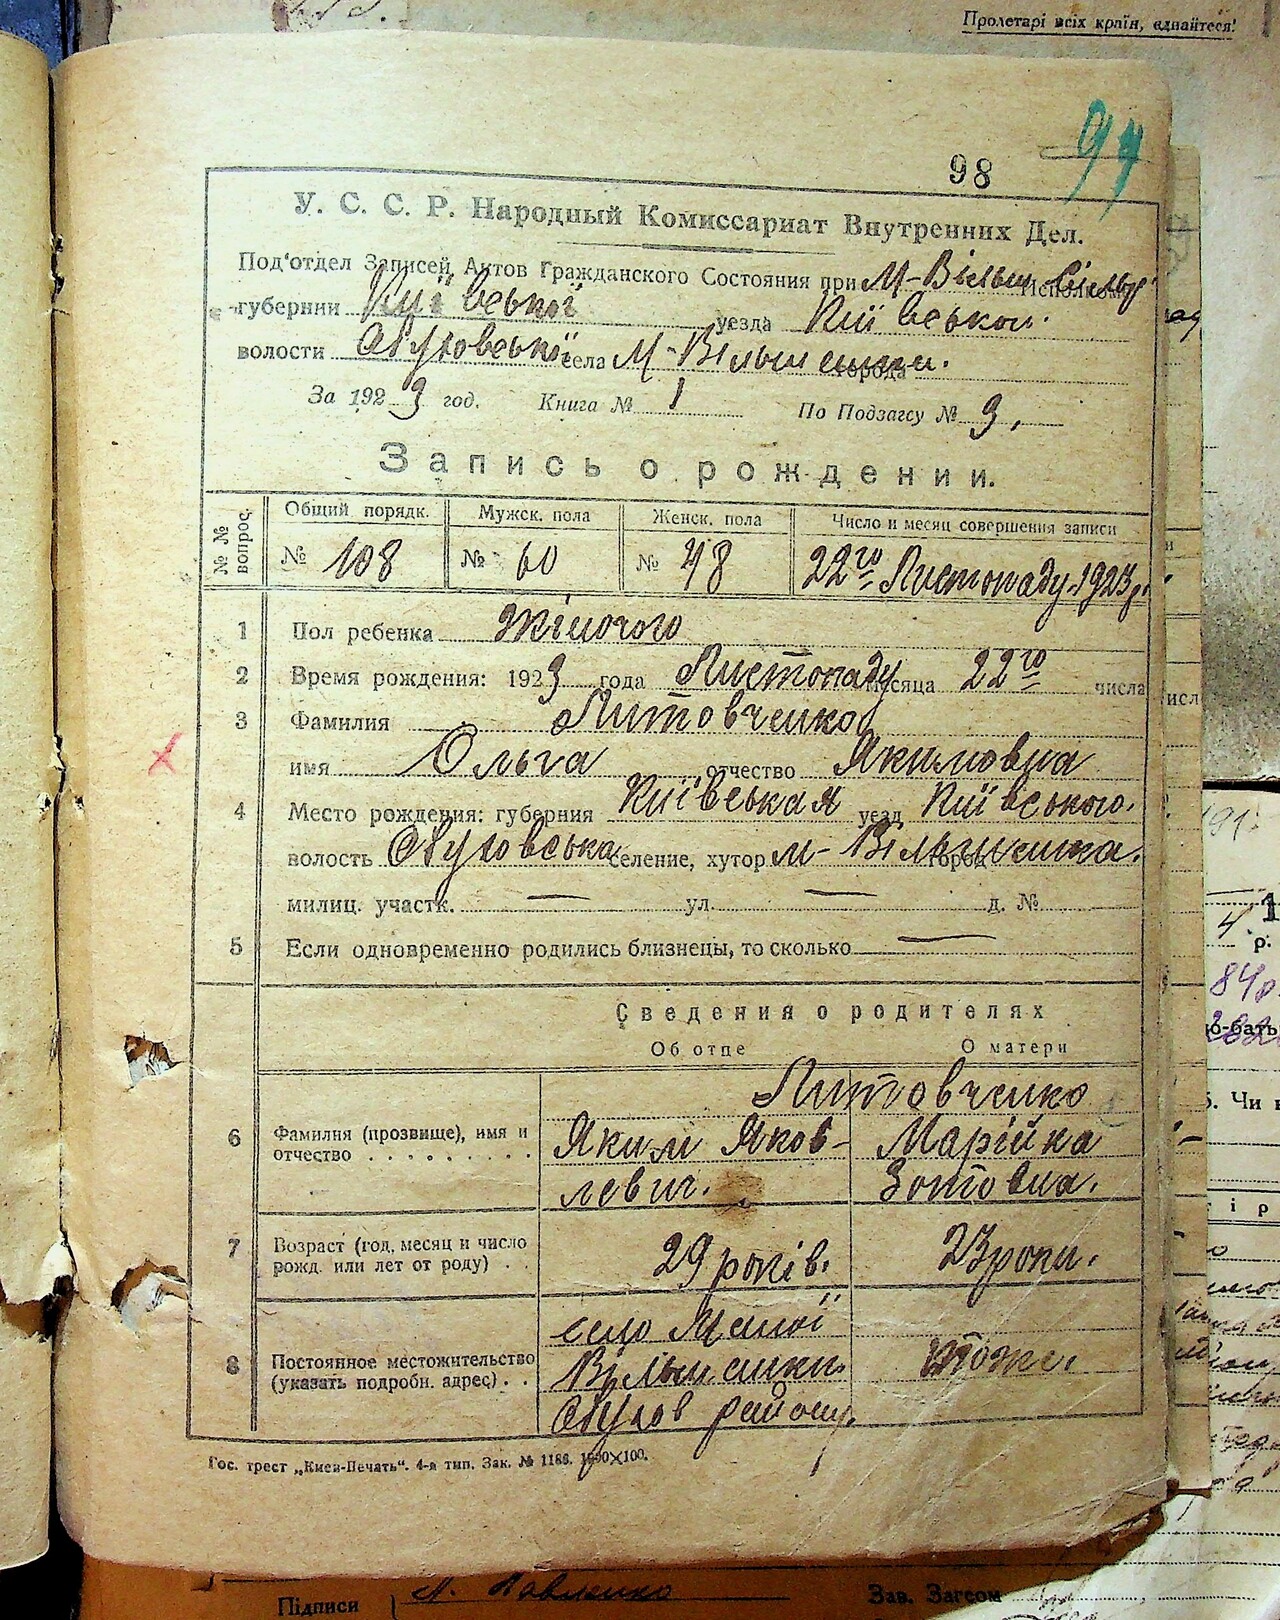 Пролетарі всіх країн, єднайтеся!
97
98
У. С. С. Р. Народный Комиссариат Внутренних Дел.
Под'отдел Записей Актов Гражданского Состояния при М-Вільш. Сільр Исполком
губернии Київської уезда Київського.
волости Обуховської села М-Вільшанки. города
За 1923 год. Книга № 1 По Подзагсу № 9.
Запись о рождении.
№ № вопрос. Общий порядк. Мужск. пола Женск. пола Число и месяц совершения записи
№ 108 № 60 № 48 22го Листопаду 1923 р.
1 Пол ребенка жіночого
2 Время рождения: 1923 года Листопаду месяца 22го числа
3 Фамилия Литовченко
имя Ольга отчество Якимовна
4 Место рождения: губерния Київська уезд Київського.
волость Обуховська селение, хутор м-Вільшанка. город
милиц. участк. — ул. — д. №
5 Если одновременно родились близнецы, то сколько —
Сведения о родителях
Об отце О матери
Литовченко
6 Фамилия (прозвище), имя и Яким Яков- Марійка
отчество левич. Зотовна.
7 Возраст (год, месяц и число 29 років. 23 роки.
рожд. или лет от роду)
село Малої
8 Постоянное местожительство Вільшанки тоже.
(указать подробн. адрес) Обухов району.
Гос. трест „Киев-Печать". 4-я тип. Зак. № 1186. 1000×100.
Підписи Зав. Загсом